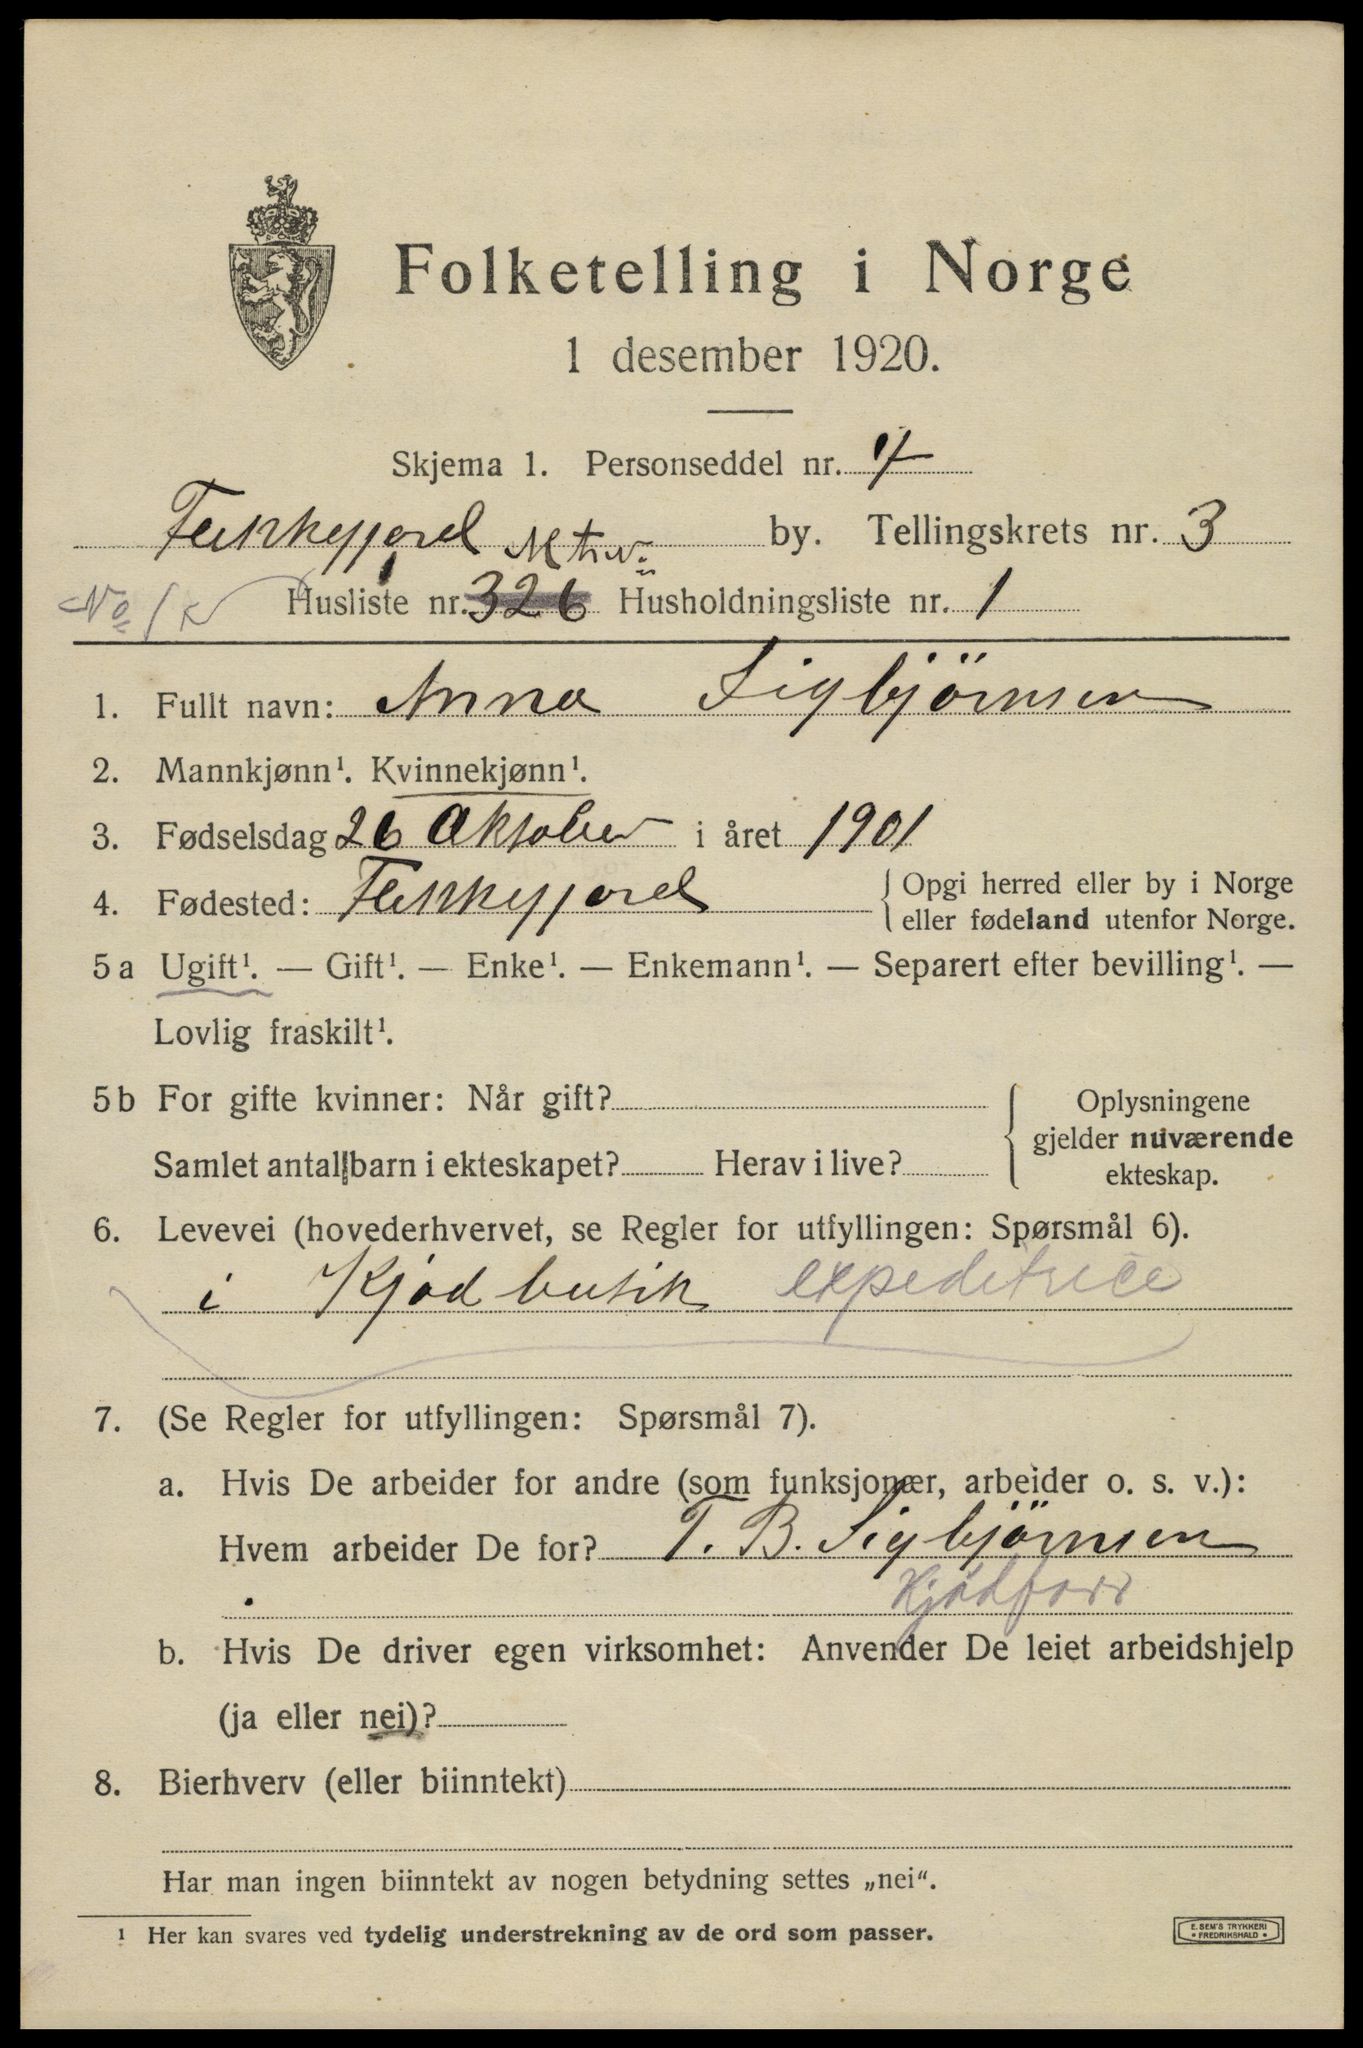 Folketelling i Norge
1 desember 1920.
Skjema 1. Personseddel nr. 4
Flekkefjord by. Tellingskrets nr. 3
Husliste nr. 326 Husholdningsliste nr. 1
1. Fullt navn: Anna Sigbjörnsen
2. Mannkjønn¹. Kvinnekjønn¹.
3. Fødselsdag 26 Oktober i året 1901
4. Fødested: Flekkefjord { Opgi herred eller by i Norge
eller fødeland utenfor Norge.
5a Ugift¹. — Gift¹. — Enke¹. — Enkemann¹. — Separert efter bevilling¹. —
Lovlig fraskilt¹.
5b For gifte kvinner: Når gift?
Samlet antal barn i ekteskapet? Herav i live?
{ Oplysningene
gjelder nuværende
ekteskap.
6. Levevei (hovederhvervet, se Regler for utfyllingen: Spørsmål 6).
i Kjød butik expeditrice
7. (Se Regler for utfyllingen: Spørsmål 7).
a. Hvis De arbeider for andre (som funksjonær, arbeider o. s. v.):
Hvem arbeider De for? T. B. Sigbjörnsen
Kjødforr
b. Hvis De driver egen virksomhet: Anvender De leiet arbeidshjelp
(ja eller nei)?
8. Bierhverv (eller biinntekt)
Har man ingen biinntekt av nogen betydning settes „nei“.
¹ Her kan svares ved tydelig understrekning av de ord som passer.
E. SEM'S TRYKKERI
• FREDRIKSHALD •